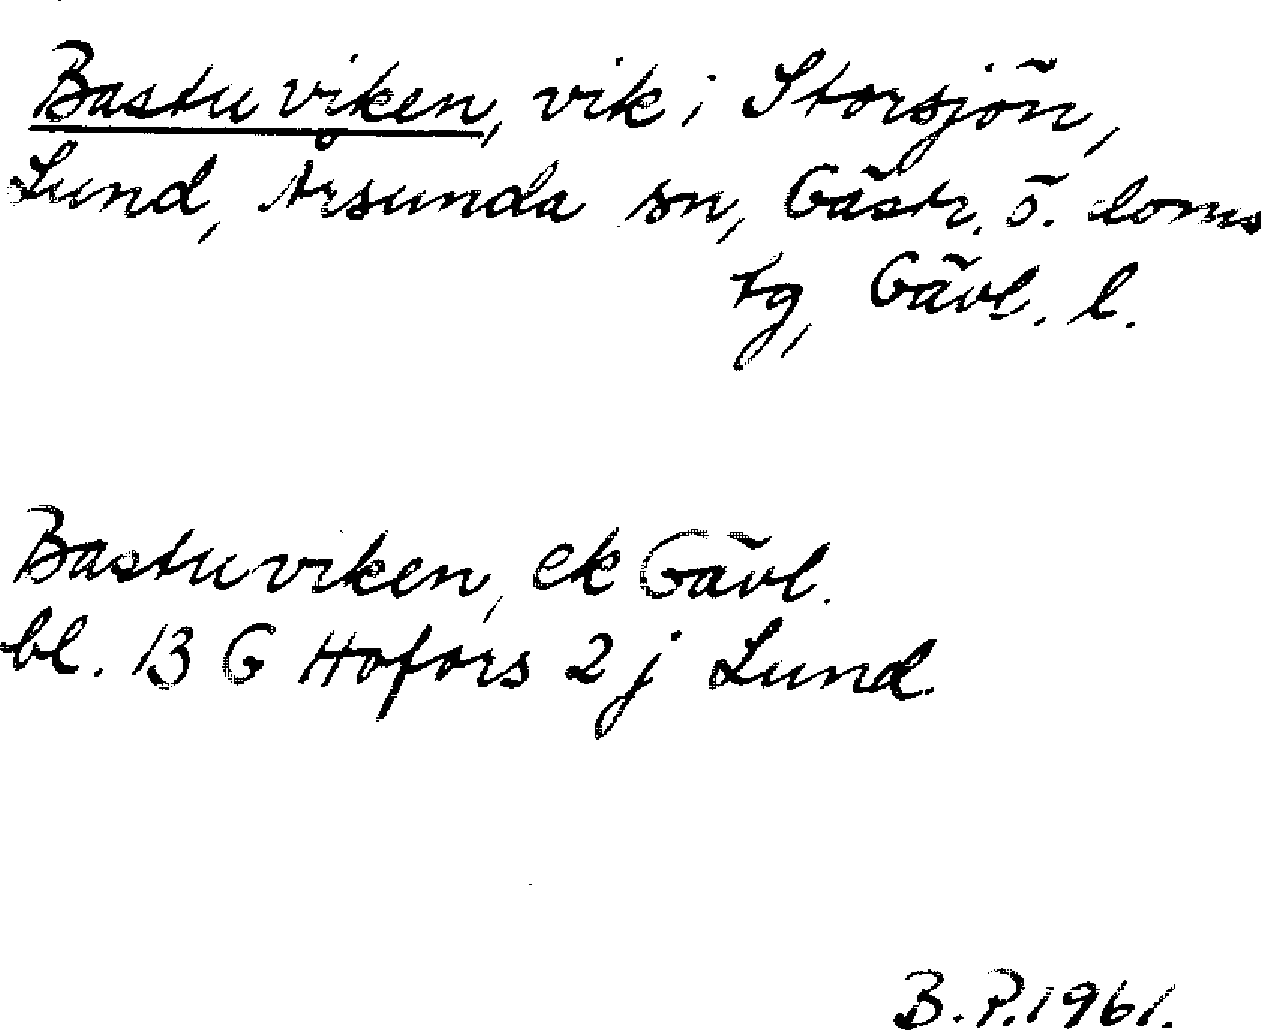 Bastuviken, vik i Storsjön,
Lund, Årsunda sn, Gästr. ö. doms
tg, Gävl. l.
Bastuviken, ek Gävl.
bl. 13 G Hofors 2 j Lund.
B. P. 1961.